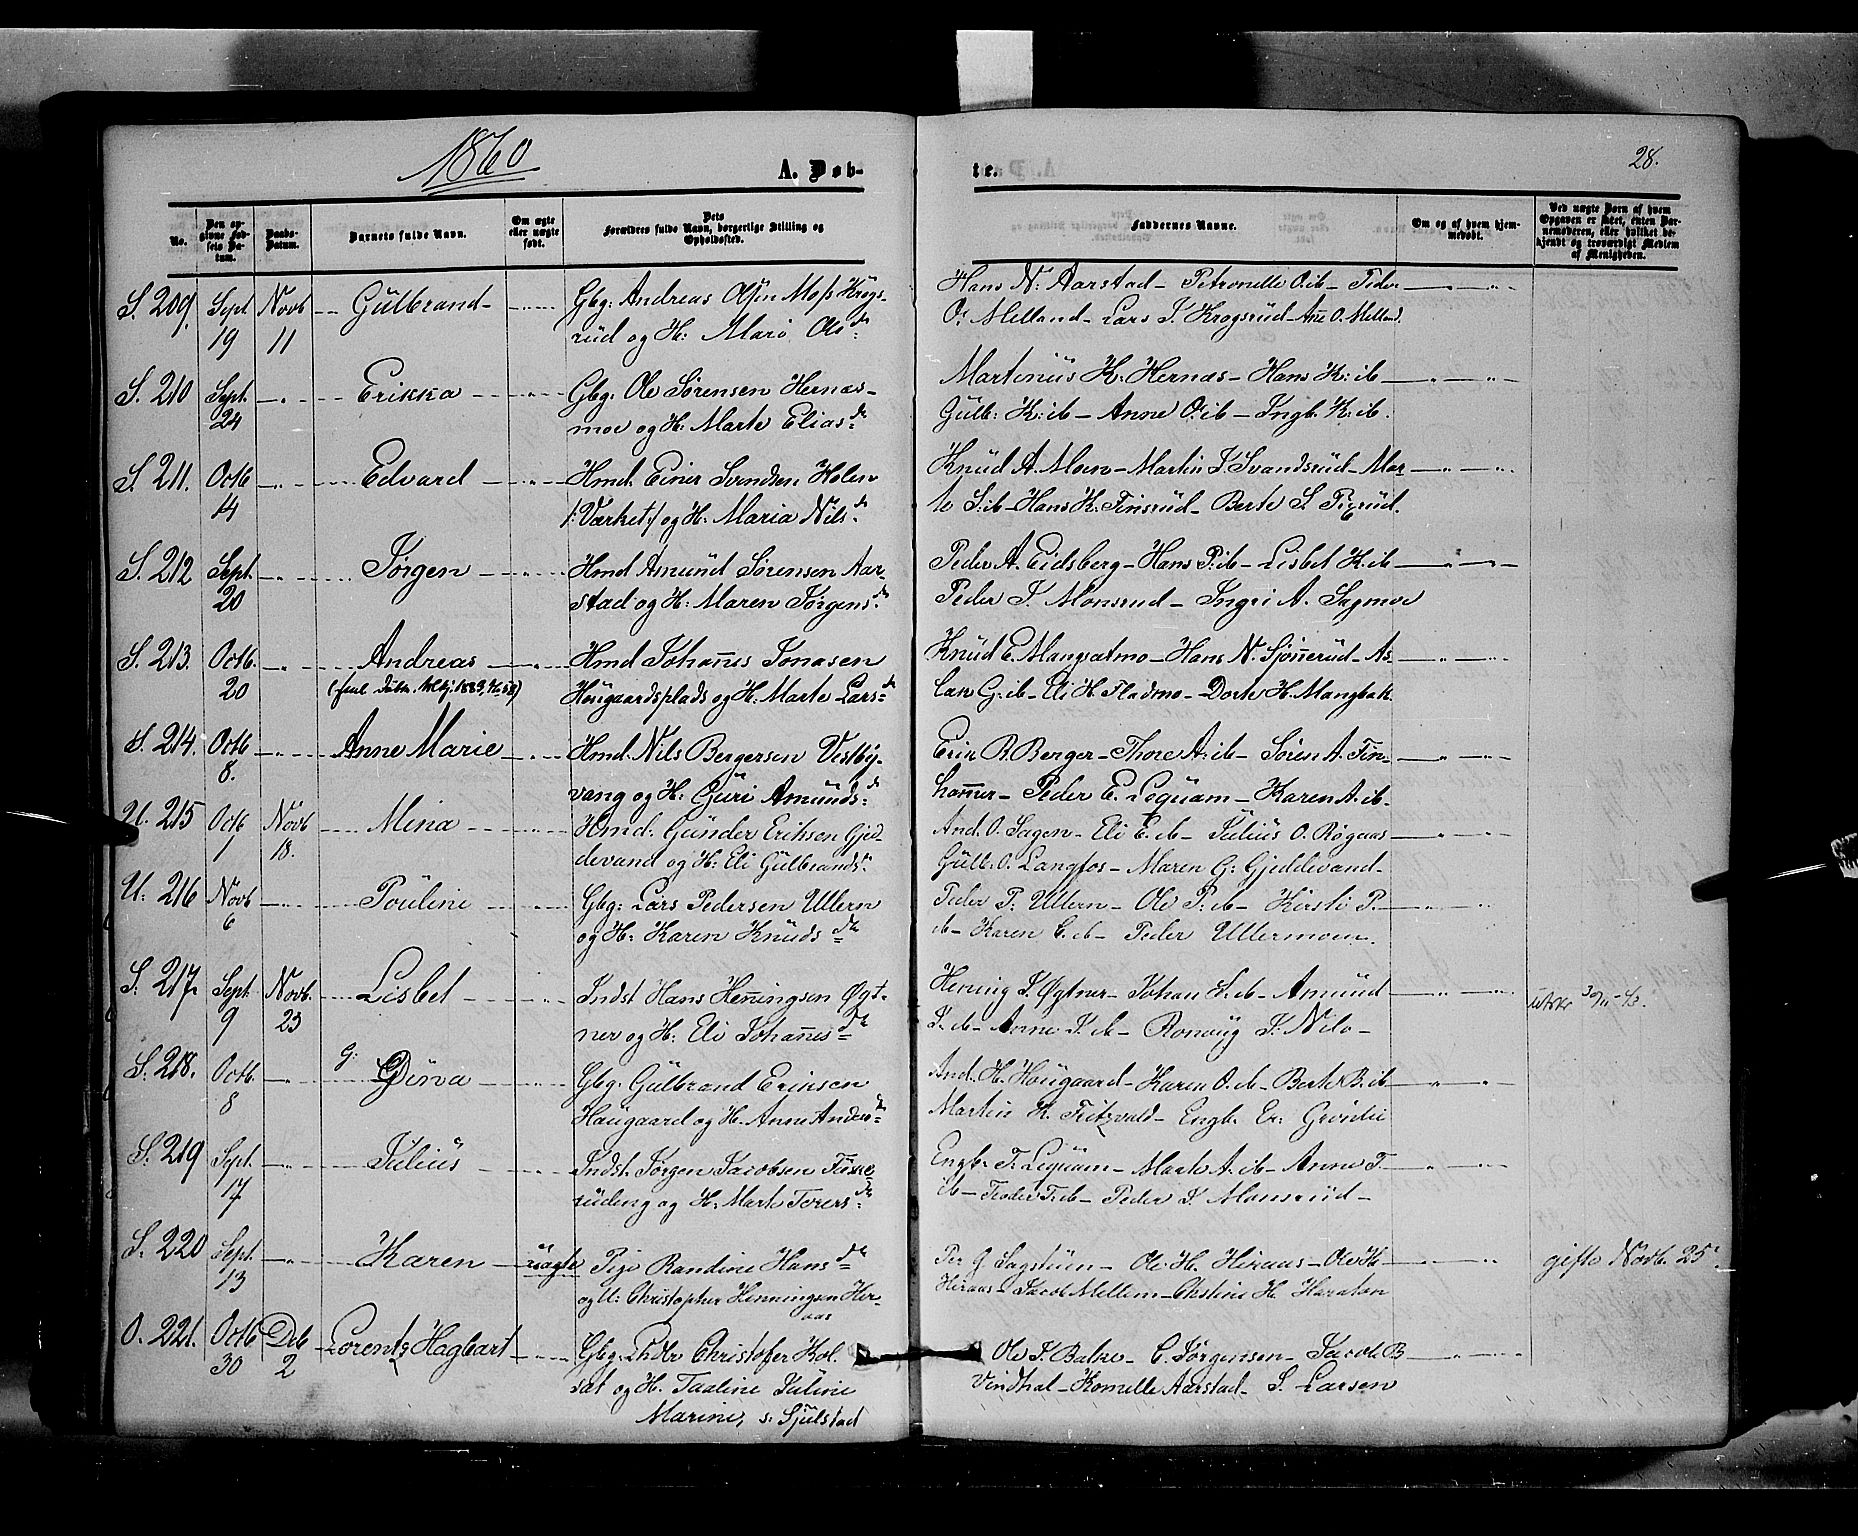 1860
A. Døb-
te.
28.
No.
Den opgivne Fødsels Datum.
Daabs-Datum.
Barnets fulde Navn.
Om ægte eller uægte født.
Dets Forældres fulde Navn, borgerlige Stilling og Opholdssted.
Faddernes Navne.
Om og af hvem hjemmedøbt.
Ved uægte Børn af hvem Opgaven er skeet, enten Barnemoderen, eller hvilket bekjendt og troværdigt Medlem af Menigheden.
S. 209. Sept 19 Novb 11 Gülbrand
Gbg: Andreas Olsen Moss Krogs-
rüd og H: Mari Olsdr
Hans N: Aarstad – Petronelle O. ib – Peder
O. Melland – Lars J. Krogsrüd – Ane O. Melland.
S. 210 Sept. 24 Erikka
Gbg: Ole Sørensen Hernæs-
moe og H: Marte Eliasdr
Martinüs K. Hernæs – Hans K: ib
Gülb: K: ib – Anne O. ib – Ingb. K: ib.
S. 211. Octb 14 Edvard
Hmd. Einer Svendsen Holen
/: Værket :/ og H: Maria Nilsdr
Knüd A. Moen – Martin J. Svandsrüd – Mar-
te S. ib – Hans K. Finsrüd – Berte S.
S. 212 Sept. 20 Jørgen
Hmd Amünd Sørensen Aar-
stad og H: Maren Jørgensdr
Peder A. Eidsberg – Hans P. ib – Lisbet K. ib
Peder J. Monsrud – Ingri A. Sagmoe
S. 213. Octb. 20 Andreas
Hmd Johañes Jonasen
Hougaardsplads og H: Marte Larsdr
Knüd E. Mangsætmo – Hans N. Sjøñerüd – As-
lak G: ib – Eli H. Fladmo – Dorte H. Mangbak
S. 214. Octb 8. Anne Marie
Hmd. Nils Bergersen Vestby-
vang og H: Güri Amündsdr
Erik B. Berger – Thore A: ib – Søren A. Fin-
hammer – Peder E. Lequam – Karen A. ib –
U. 215 Octb 1 Novb 18. Mina
Hmd: Günder Eriksen Gjed-
devand og H: Eli Gülbrandsdr
And. O. Sagen – Eli E. ib – Jülius O. Røgaas
Gülb: O. Langfos – Maren G: Gjeddevand –
U. 216 Novb 6 Pouline
Gbg: Lars Pedersen Ullern
og H: Karen Knüdsdr
Peder P. Ullern – Ole P: ib – Kirsti P.
ib – Karen C. ib – Peder Ullernmoen.
S. 217. Sept 9 Novb. 23 Lisbet
Indst Hans Heñingsen Øgt-
ner og H: Eli Johañesdr
Hening J. Øgtner – Johan H. ib – Amünd
J. ib – Anne J. ib – Ronnüg J. Nilo –
S. 218. Octb. 8 G: Dina
Gbg. Gülbrand Eriksen
Haugaard og H. Anne Andersdr
And. H. Hougaard – Karen O. ib – Berte B. ib
Martin K. Fritzvold – Engb. Er:
S. 219 Sept. 17 Jülius
Indst. Jørgen Jacobsen Füske-
rüdeng og H: Marte Toresdr
Engb: T. Lequam – Marte A. ib – Anne T.
ib – Peder T. ib – Peder J. Monsrüd –
S. 220 Sept. 13 Karen uægte
Pige Randine Hansdr
og U: Christopher Henningsen Her-
aas
Per G Sagstüen – Ole H. Heraas – Ole K
Heraas – Jacob Mellem – Chstine H.
gifte Novb. 25.
O. 221. Octb 30 Deb 2 Lorents Hagbart
Gbg. Christofer Kol-
sat og H. Taaline Juline
Marine, s: Sjülstad
Ole J. Balke – C. Jørgensen – Jacob B
Vindhal – Kornelle Aarstad – S. Larsen